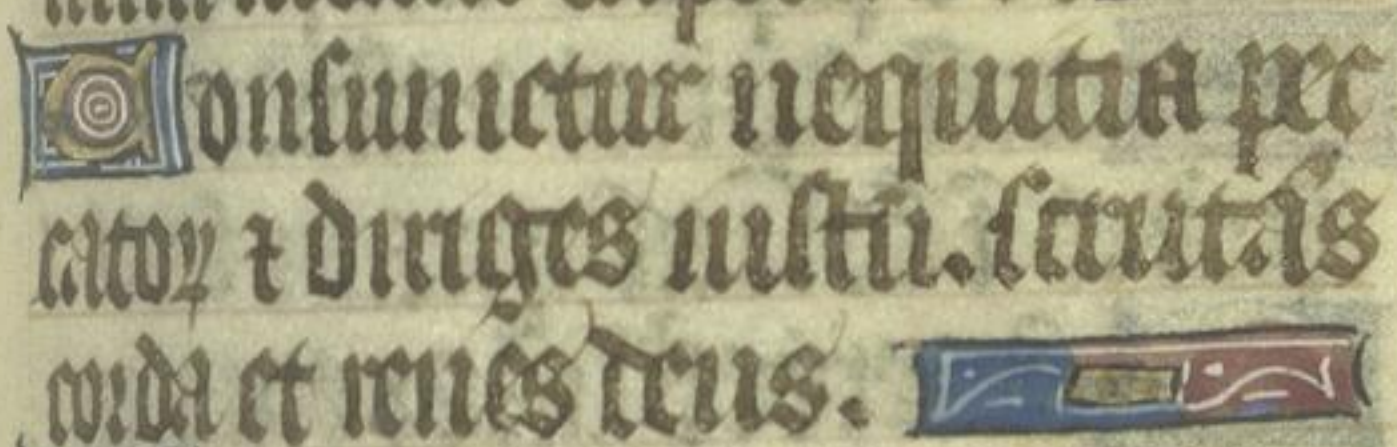 Consumetur nequitia pec
catoꝝ ⁊ diriges iustū. scrutās
corda et renes deus.